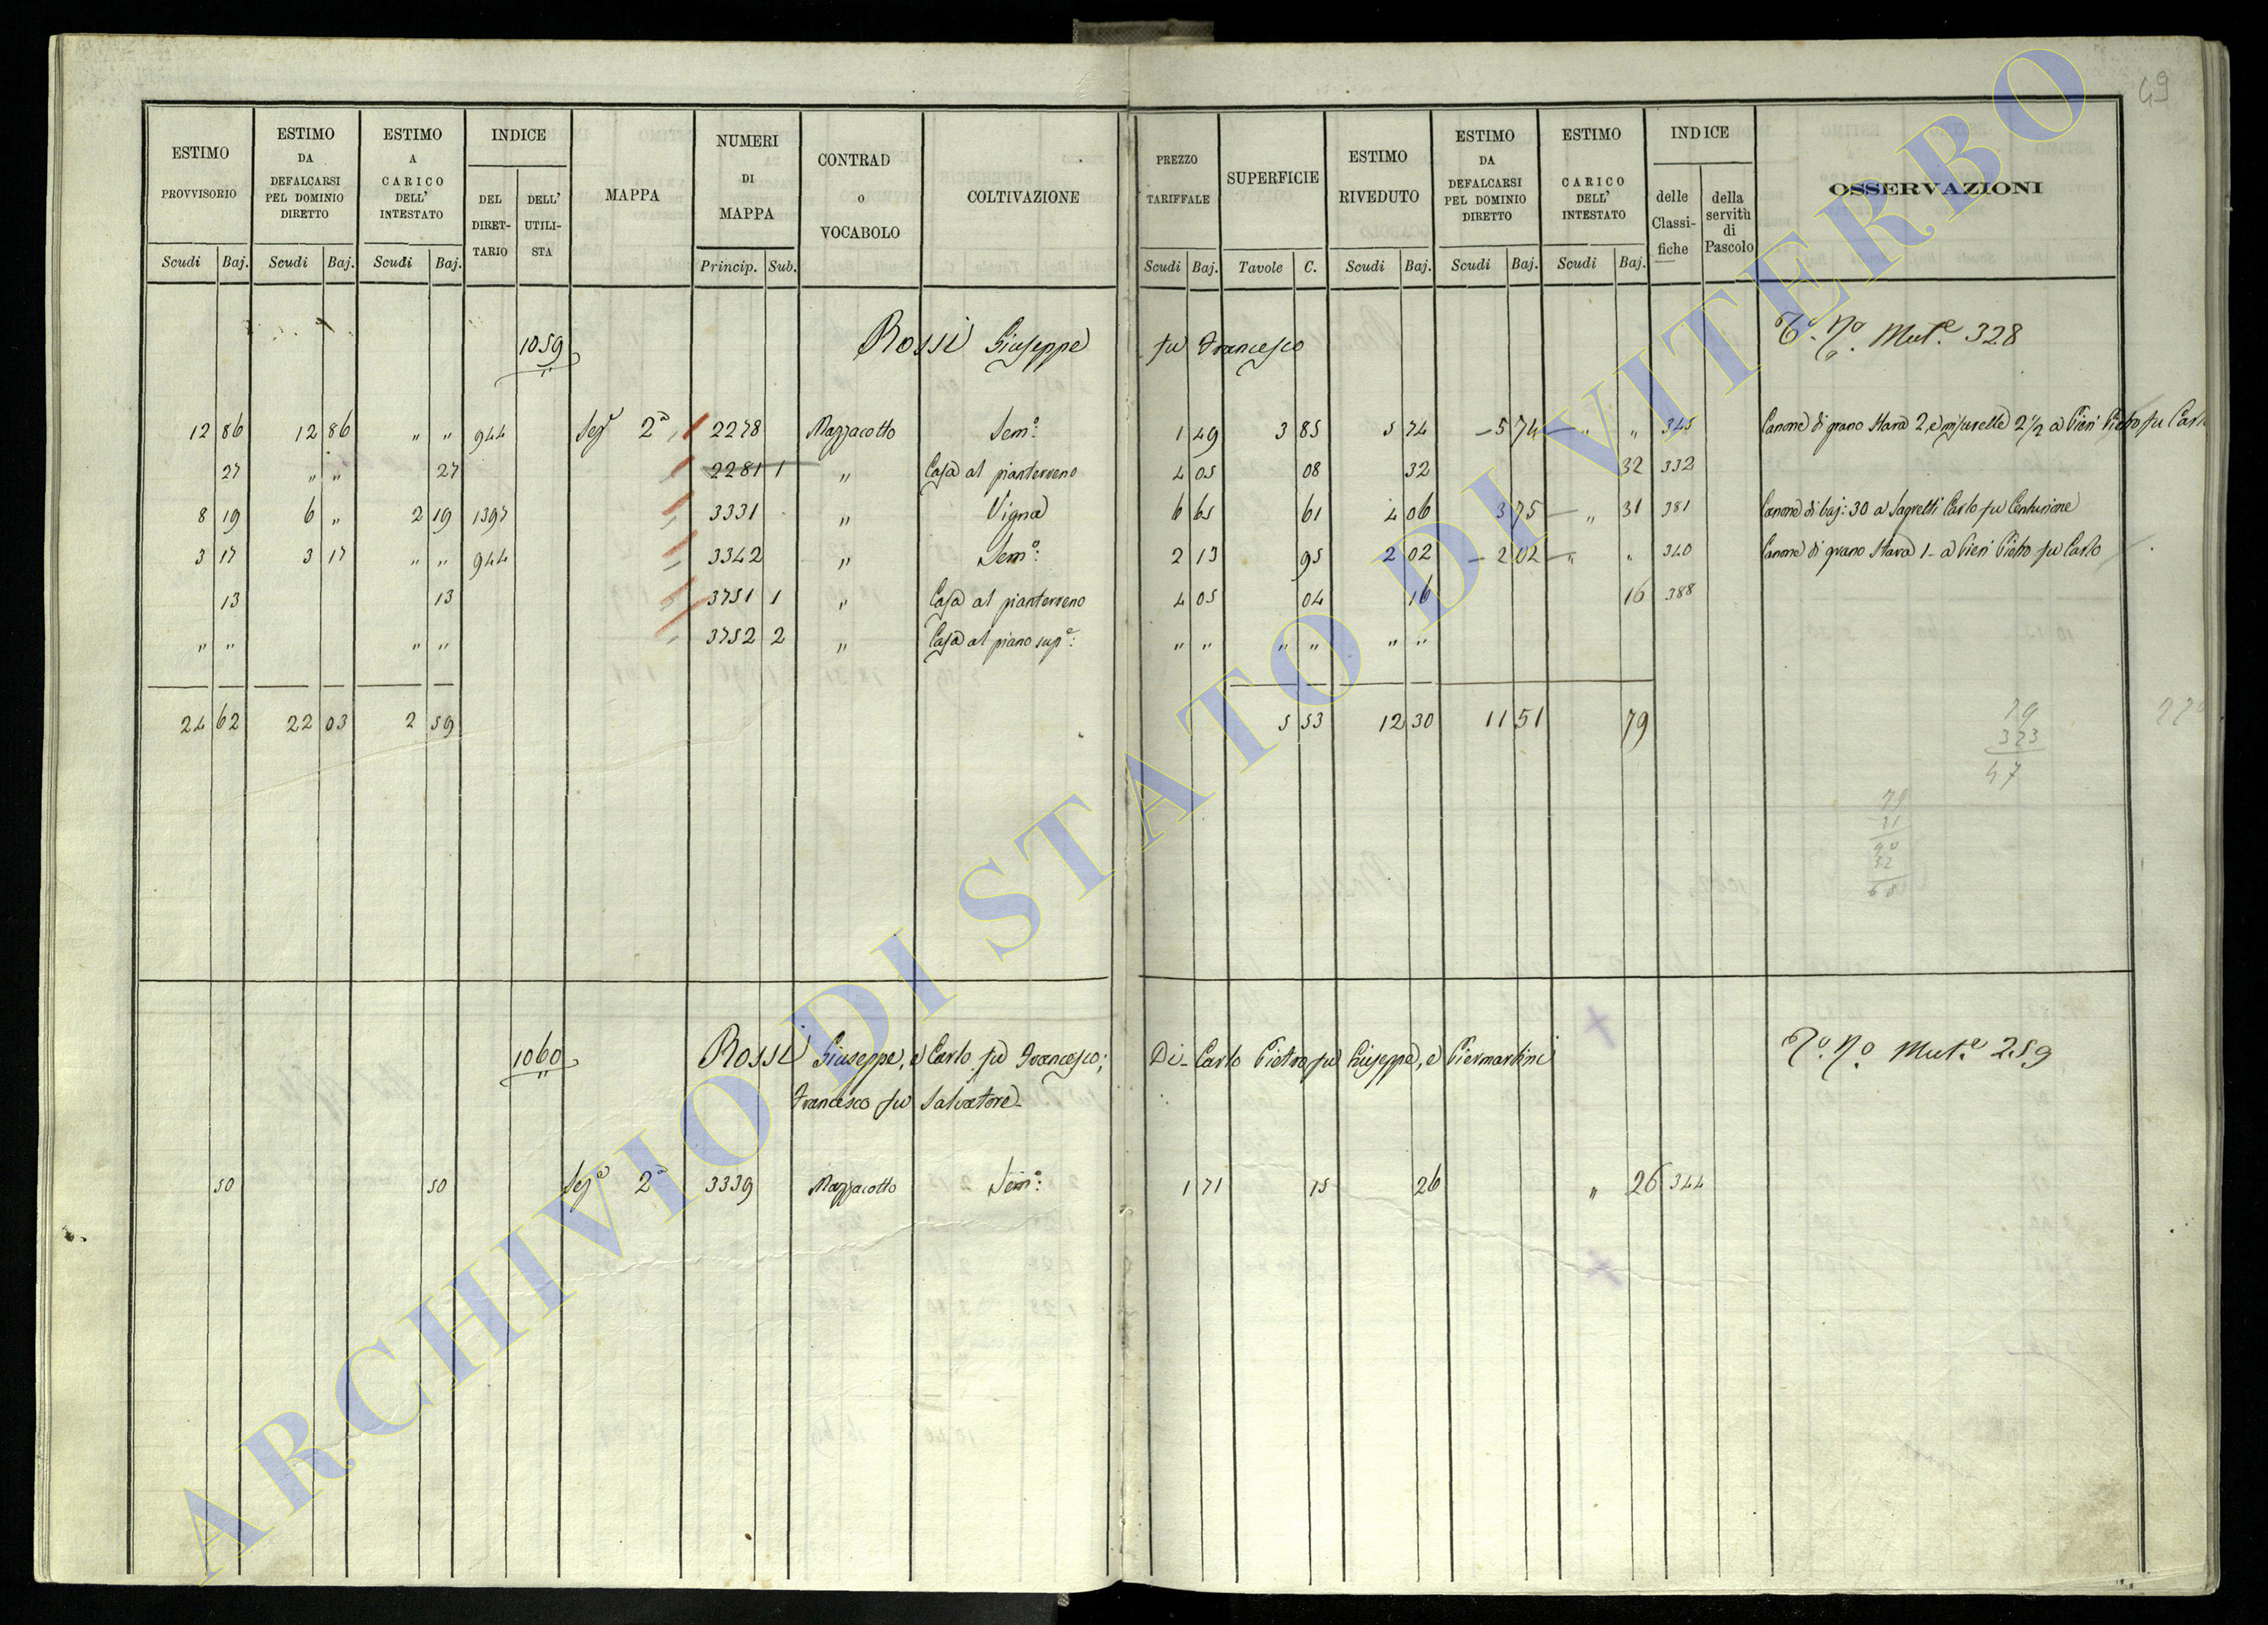 49
ESTIMO PROVVISORIO Scudi Baj. ESTIMO DA DEFALCARSI PEL DOMINIO DIRETTO Scudi Baj. ESTIMO A CARICO DELL' INTESTATO Scudi Baj. INDICE DEL DIRET-TARIO DELL' UTILI-STA MAPPA NUMERI DI MAPPA Princip. Sub. CONTRAD o VOCABOLO COLTIVAZIONE PREZZO TARIFFALE Scudi Baj. SUPERFICIE Tavole C. ESTIMO RIVEDUTO Scudi Baj. ESTIMO DA DEFALCARSI PEL DOMINIO DIRETTO Scudi Baj. ESTIMO CARICO DELL' INTESTATO Scudi Baj. INDICE delle Classi-fiche della servitù di Pascolo OSSERVAZIONI
1059 Rossi Giuseppe fu Francesco Mut.e 328
12 86 12 86 " " 944 Sez.e 2a 2278 Mazzacotto Sem.o: 1 49 3 85 5 74 – 5 74 – " " 345 Canone di grano Stara 2, e misurelle 2 1/2 a Pieri Pietro fu Carlo
27 " " 27 2281 1 " Casa al pianterreno 4 05 08 32 32 332
8 19 6 " 2 19 1397 3331 " Vigna 6 65 61 4 06 3 75 – " 31 381 Canone di baj: 30 a Sagretti Carlo fu Centurione
3 17 3 17 " " 944 3342 " Sem.o: 2 13 95 2 02 – 2 02 – " " 340 Canone di grano Stara 1 – a Pieri Pietro fu Carlo
13 13 3751 1 " Casa al pianterreno 4 05 04 16 16 388
" " " " 3752 2 " Casa al piano sup.e: " " " " " "
24 62 22 03 2 59 5 53 12 30 11 51 79
79
323
47
32
68
1060 Rossi Giuseppe, e Carlo fu Francesco; Di-Carlo Pietro fu Giuseppe, e Piermartini Mut.e 259
Francesco fu Salvatore
50 50 Sez.e 2a 3339 Mazzacotto Sem.o: 1 71 15 26 " 26 344
ARCHIVIO DI STATO DI VITERBO